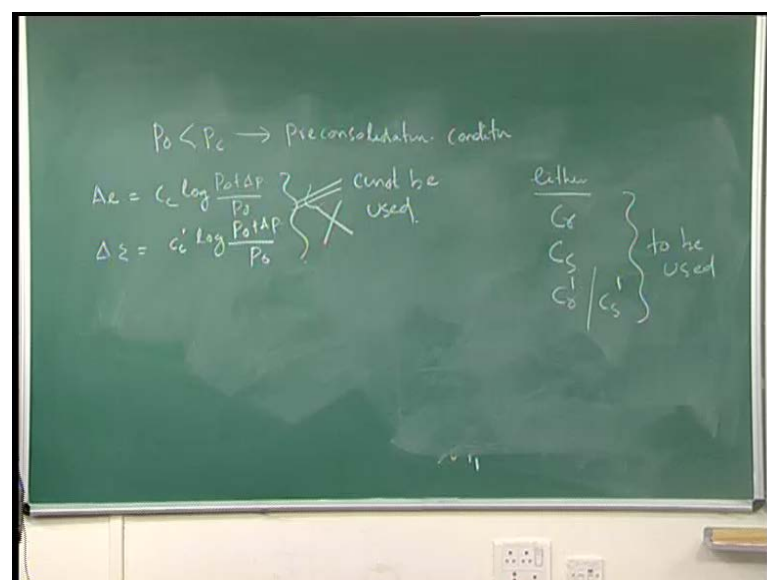 P₀ < P_c → Preconsolidation condition
Δe = C_c log (P₀+ΔP)/P₀
Δε = C_c' log (P₀+ΔP)/P₀
cannot be
used.
either
C_r
C_s
C_r' / C_s'
to be
used